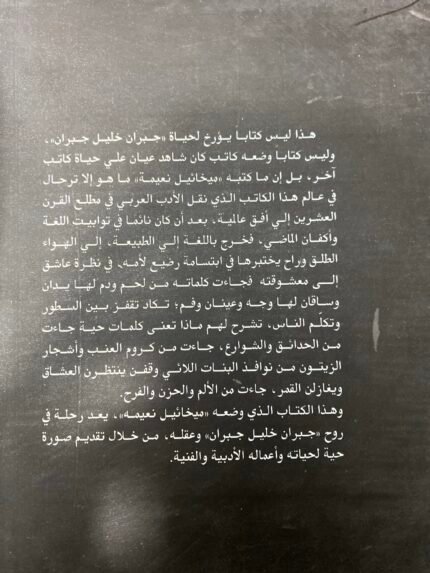 هذا ليس كتاباً يؤرخ لحياة «جبران خليل جبران»،
وليس كتاباً وضعه كاتب كان شاهد عيان علي حياة كاتب
آخر، بل إن ما كتبه «ميخائيل نعيمة» ما هو إلا ترحال
في عالم هذا الكاتب الذي نقل الأدب العربي في مطلع القرن
العشرين إلي أفق عالمية، بعد أن كان نائما في توابيت اللغة
وأكفان الماضي، فخرج باللغة إلي الطبيعة، إلي الهواء
الطلق وراح يختبرها في ابتسامة رضيع لأمه، في نظرة عاشق
إلى معشوقته فجاءت كلماته من لحم ودم لها يدان
وساقان لها وجه وعينان وفم؛ تكاد تقفز بين السطور
وتكلّم الناس، تشرح لهم ماذا تعنى كلمات حية جاءت
من الحدائق والشوارع، جاءت من كروم العنب وأشجار
الزيتون من نوافذ البنات اللائي وقفن ينتظرن العشاق
ويغازلن القمر، جاءت من الألم والحزن والفرح.
وهذا الكتاب الذي وضعه «ميخائيل نعيمه»، يعد رحلة في
روح «جبران خليل جبران» وعقله، من خلال تقديم صورة
حية لحياته وأعماله الأدبية والفنية.